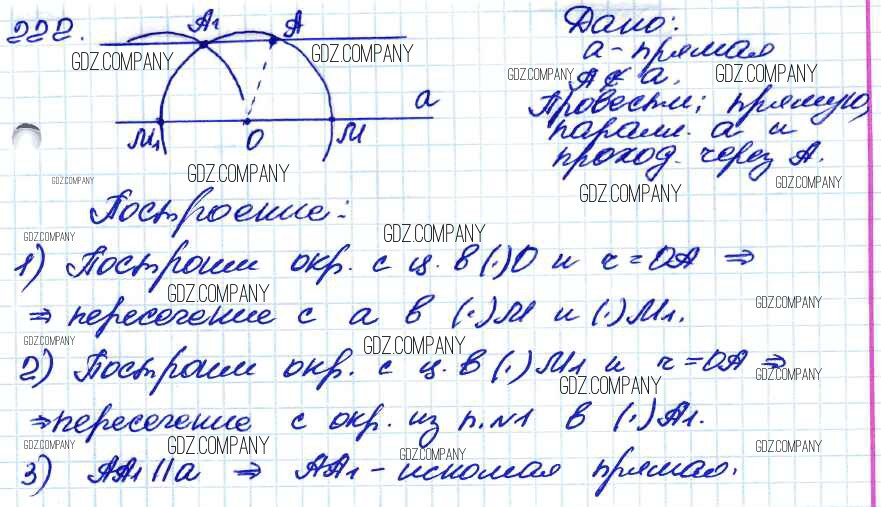 222.
A₁ A
Дано:
а - прямая
A ∉ а.
Провести: прямую,
паралл. а и
проход. через А.
а
M₁ O M
GDZ.COMPANY GDZ.COMPANY GDZ.COMPANY GDZ.COMPANY
GDZ.COMPANY GDZ.COMPANY GDZ.COMPANY GDZ.COMPANY
Построение:
GDZ.COMPANY GDZ.COMPANY
1) Построим окр. с ц. в (·)O и r = OA ⇒
GDZ.COMPANY GDZ.COMPANY
⇒ пересечение с а в (·)M и (·)M₁.
GDZ.COMPANY GDZ.COMPANY
2) Построим окр. с ц. в (·)M₁ и r = OA ⇒
GDZ.COMPANY GDZ.COMPANY
⇒ пересечение с окр. из п.№1 в (·)A₁.
GDZ.COMPANY GDZ.COMPANY GDZ.COMPANY GDZ.COMPANY
3) AA₁ || а ⇒ AA₁ - искомая прямая.